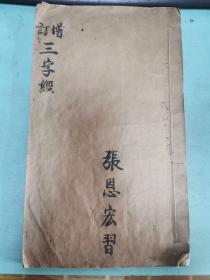 增訂
三字經
張恩宏習